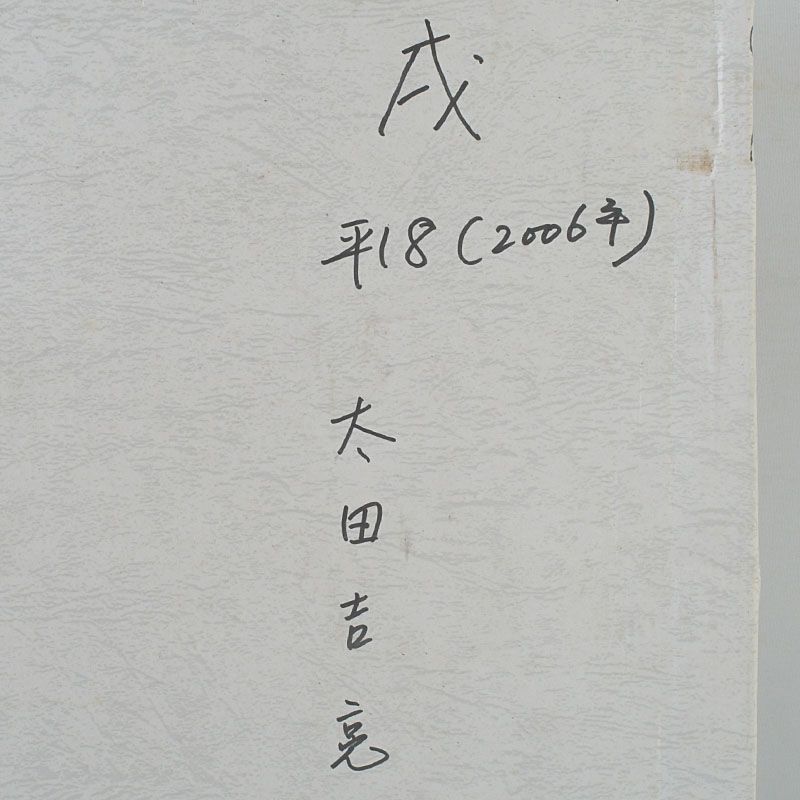 戌
平18(2006年)
太田吉亮